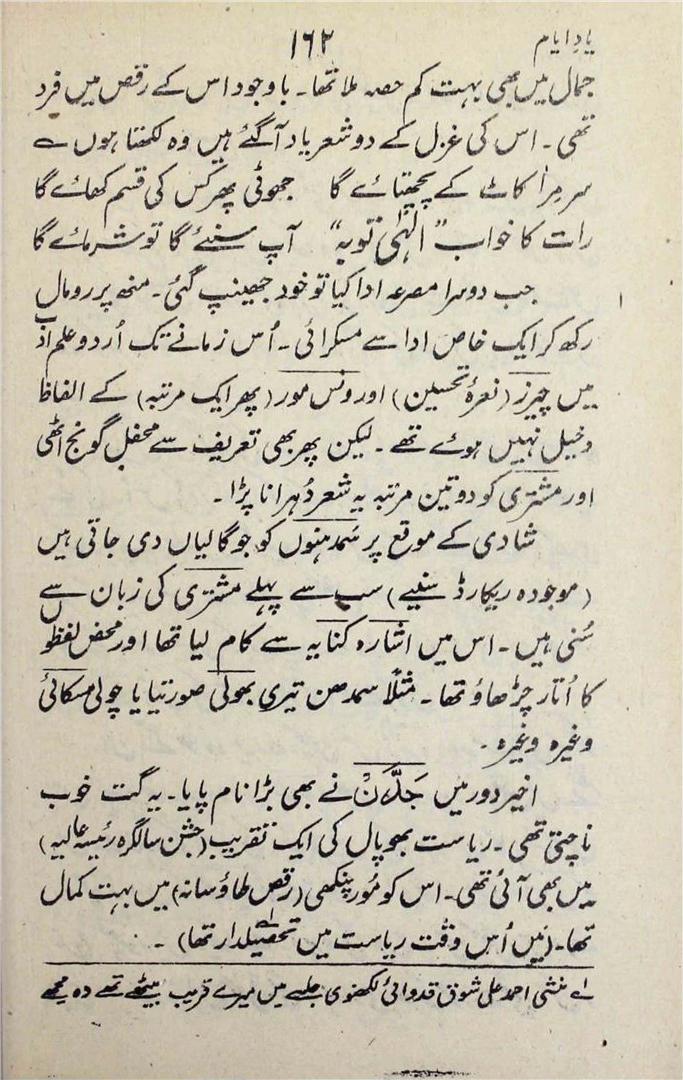 یادِ ایام ۱۶۲
جمال میں بھی بہت کم حصہ ملا تھا۔ باوجود اس کے رقص میں فرد
تھی۔ اس کی غزل کے دو شعر یاد آگئے ہیں وہ لکھتا ہوں ؎
سر مِرا کاٹ کے پچھتائے گا جھوٹی پھر کس کی قسم کھائے گا
رات کا خواب "الٰہی توبہ" آپ سنئے گا تو شرمائے گا
جب دوسرا مصرعہ ادا کیا تو خود جھینپ گئی۔ منھ پر رومال
رکھ کر ایک خاص ادا سے مسکرائی۔ اُس زمانے تک اُردو علم ادب
میں چیرز (نعرۂ تحسین) اور ونس مور (پھر ایک مرتبہ) کے الفاظ
دخیل نہیں ہوئے تھے۔ لیکن پھر بھی تعریف سے محفل گونج اٹھی
اور مشتری کو دو تین مرتبہ یہ شعر دُہرانا پڑا۔
شادی کے موقع پر سَمدہنوں کو جو گالیاں دی جاتی ہیں
(موجودہ ریکارڈ سنیے) سب سے پہلے مشتری کی زبان سے
سُنی ہیں۔ اس میں اشارہ کنایہ سے کام لیا تھا اور محض لفظوں
کا اُتار چڑھاؤ تھا۔ مثلاً سمدھن تیری بھولی صورتیا یا چولی مسکائی
وغیرہ وغیرہ۔
اخیر دور میں جَدَّن نے بھی بڑا نام پایا۔ یہ گت خوب
ناچتی تھی۔ ریاست بھوپال کی ایک تقریب (جشن سالگرہ رئیسہ عالیہ)
میں بھی آئی تھی۔ اس کو مور پنکھی (رقص طاؤسانہ) میں بہت کمال
تھا۔ (میں اُس وقت ریاست میں تحصیلدار تھا) ۔
لے منشی احمد علی شوق قدوائی لکھنوی جلسے میں میرے قریب بیٹھے تھے وہ مجھے